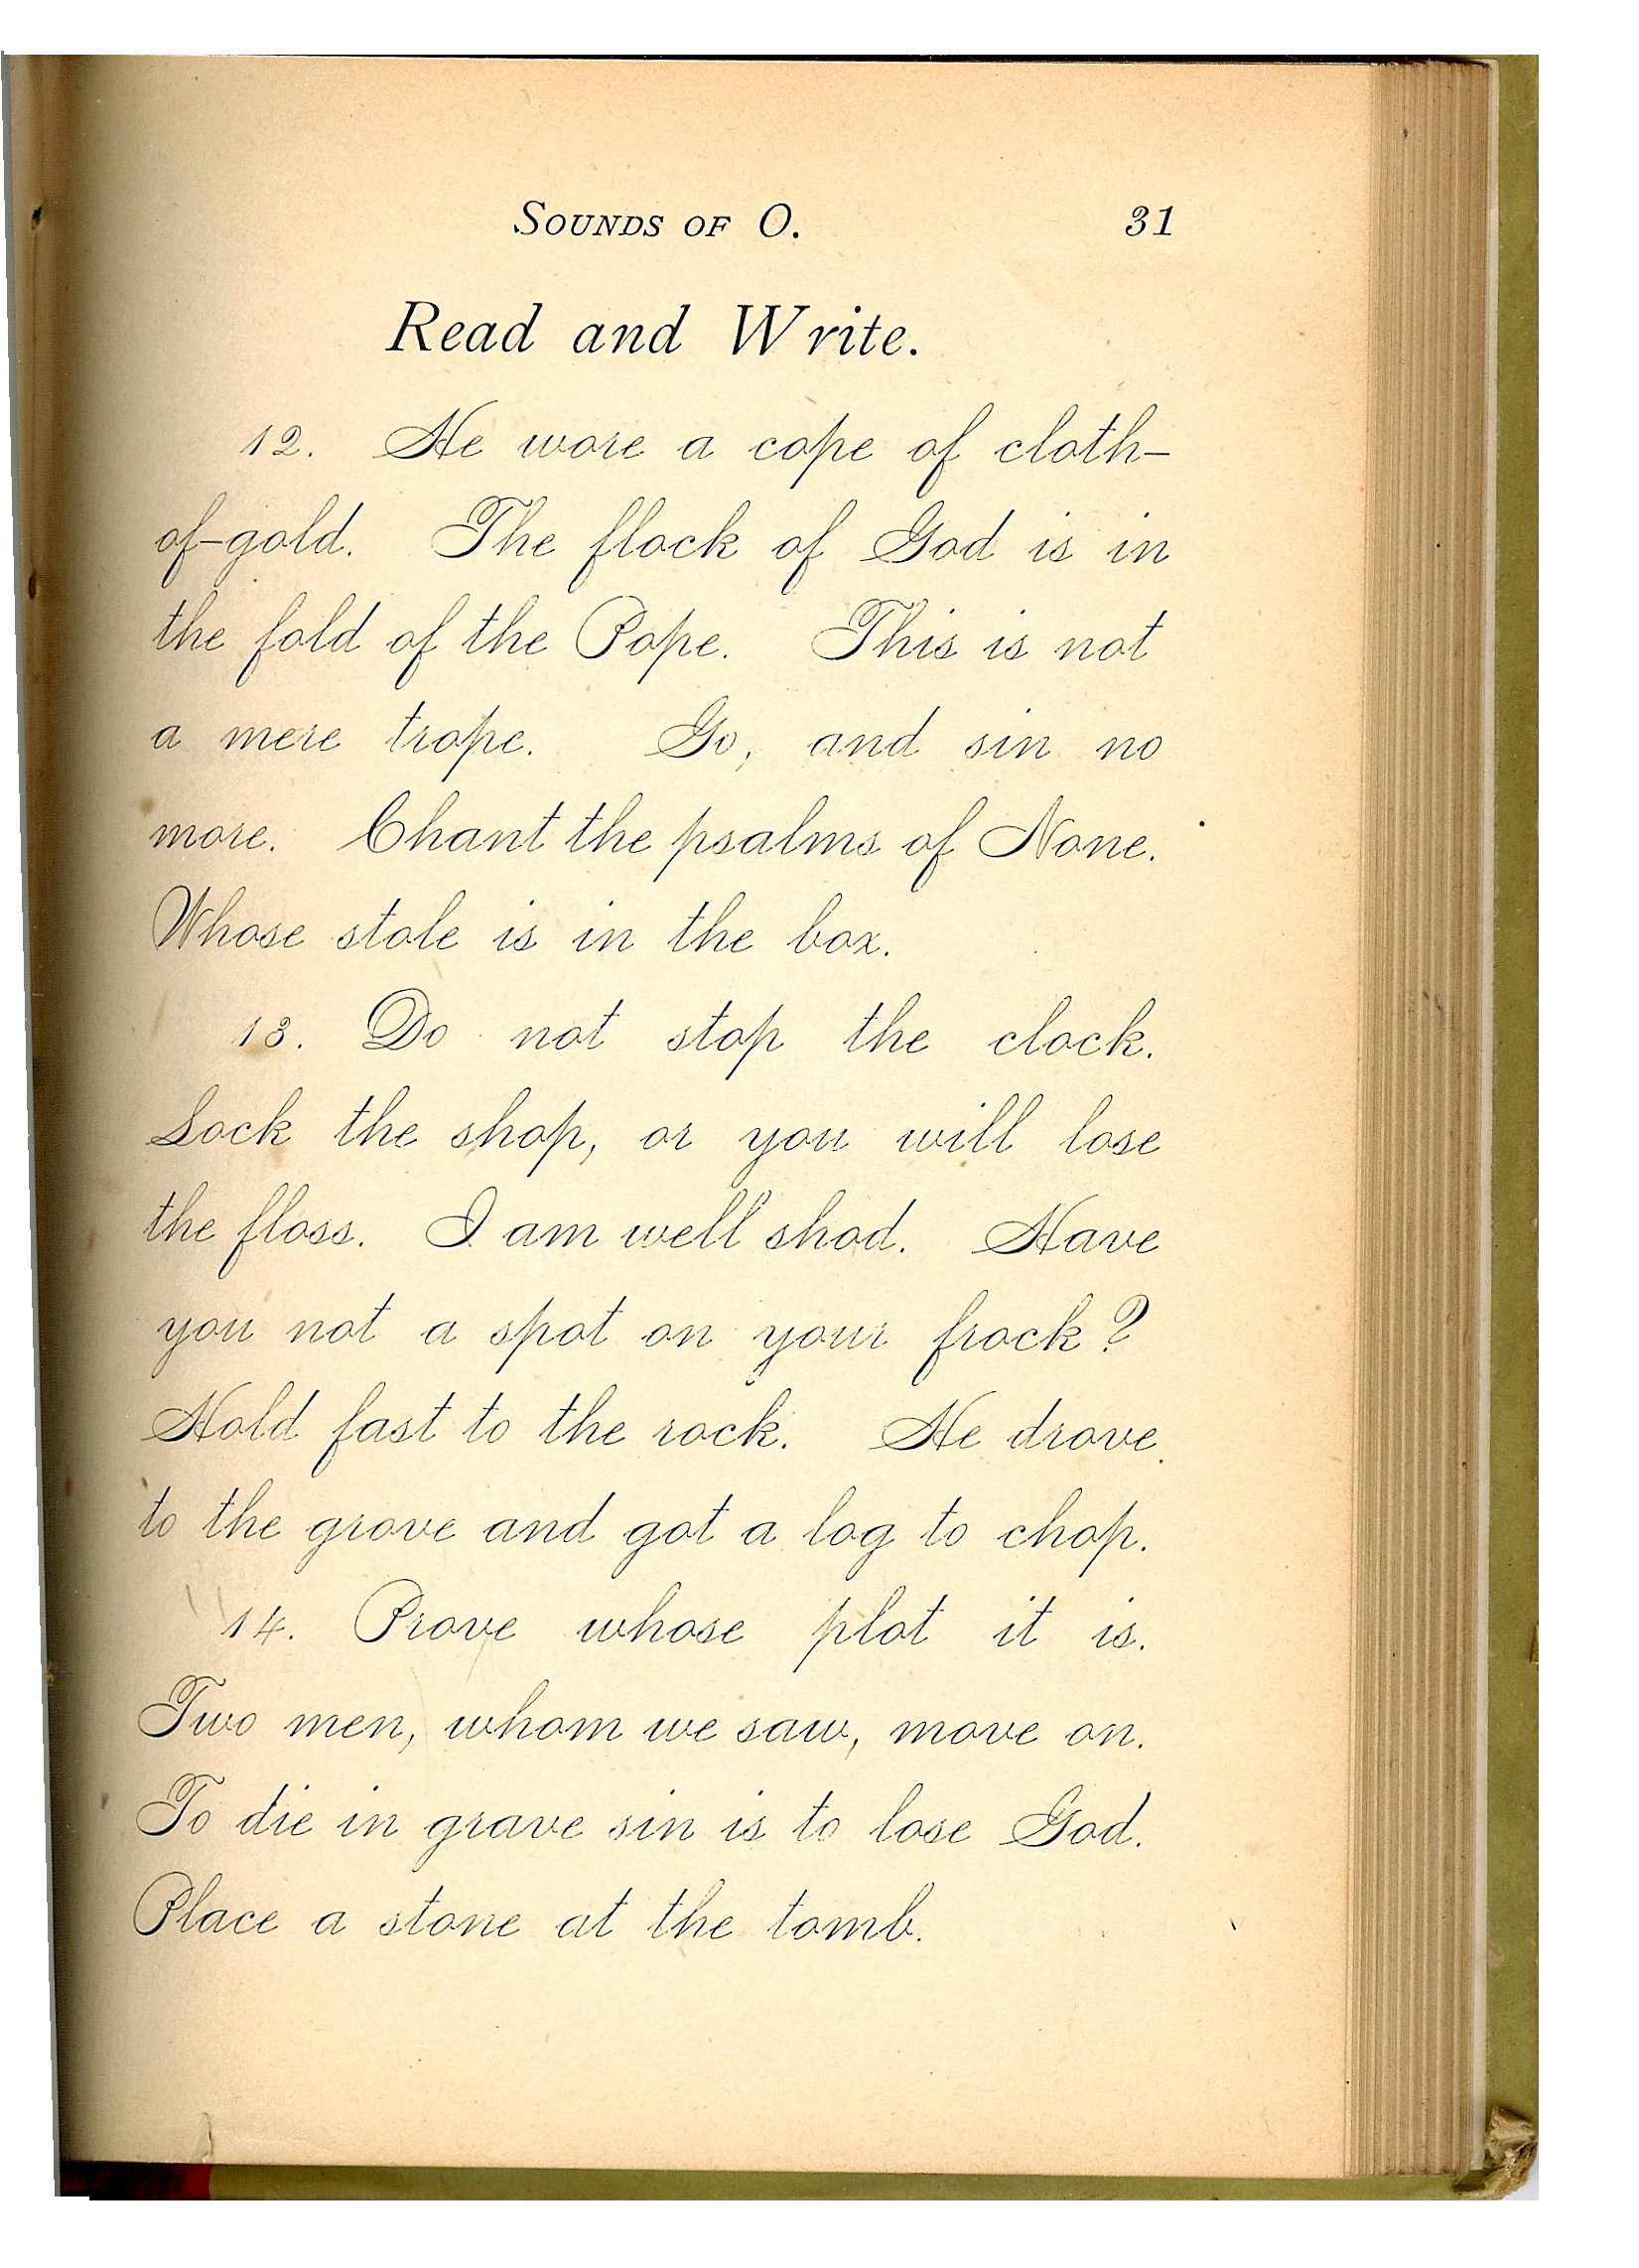 Sounds of O. 31
Read and Write.
12. He wore a cope of cloth-
of-gold. The flock of God is in
the fold of the Pope. This is not
a mere trope. Go, and sin no
more. Chant the psalms of None.
Whose stole is in the box.
13. Do not stop the clock.
Lock the shop, or you will lose
the floss. I am well shod. Have
you not a spot on your frock?
Hold fast to the rock. He drove
to the grove and got a log to chop.
14. Prove whose plot it is.
Two men, whom we saw, move on.
To die in grave sin is to lose God.
Place a stone at the tomb.